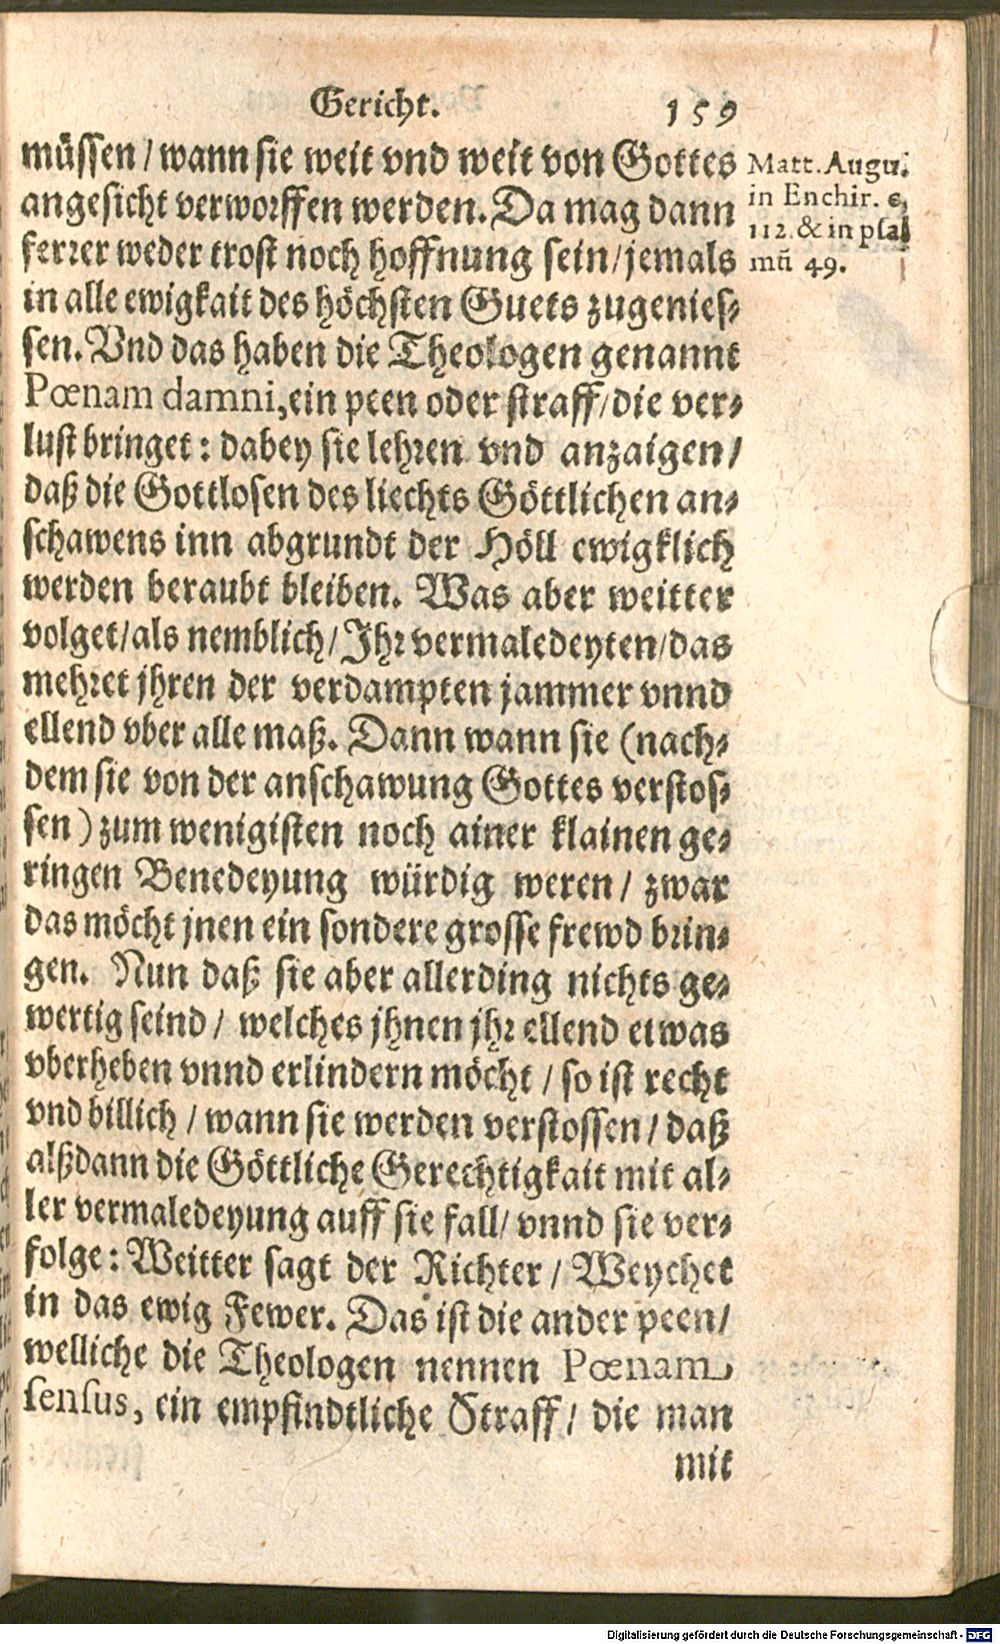 Gericht. 159
müssen / wann sie weit vnd weit von Gottes
angesicht verworffen werden. Da mag dann
ferrer weder trost noch hoffnung sein / jemals
in alle ewigkait des höchsten Guets zugenies-
sen. Vnd das haben die Theologen genannt
Pœnam damni, ein peen oder straff / die ver-
lust bringet : dabey sie lehren vnd anzaigen /
daß die Gottlosen des liechts Göttlichen an-
schawens inn abgrundt der Höll ewigklich
werden beraubt bleiben. Was aber weitter
volget / als nemblich / Ihr vermaledeyten / das
mehret jhren der verdampten jammer vnnd
ellend vber alle maß. Dann wann sie (nach-
dem sie von der anschawung Gottes verstos-
sen ) zum wenigisten noch ainer klainen ge-
ringen Benedeyung würdig weren / zwar
das möcht jnen ein sondere grosse frewd brin-
gen. Nun daß sie aber allerding nichts ge-
wertig seind / welches jhnen jhr ellend etwas
vberheben vnnd erlindern möcht / so ist recht
vnd billich / wann sie werden verstossen / daß
alßdann die Göttliche Gerechtigkait mit al-
ler vermaledeyung auff sie fall / vnnd sie ver-
folge : Weitter sagt der Richter / Weychet
in das ewig Fewer. Das ist die ander peen /
welliche die Theologen nennen Pœnam
sensus, ein empfindtliche Straff / die man
mit
Matt. Augu.
in Enchir. c,
112. & in psal
mū 49.
Digitalisierung gefördert durch die Deutsche Forschungsgemeinschaft - DFG